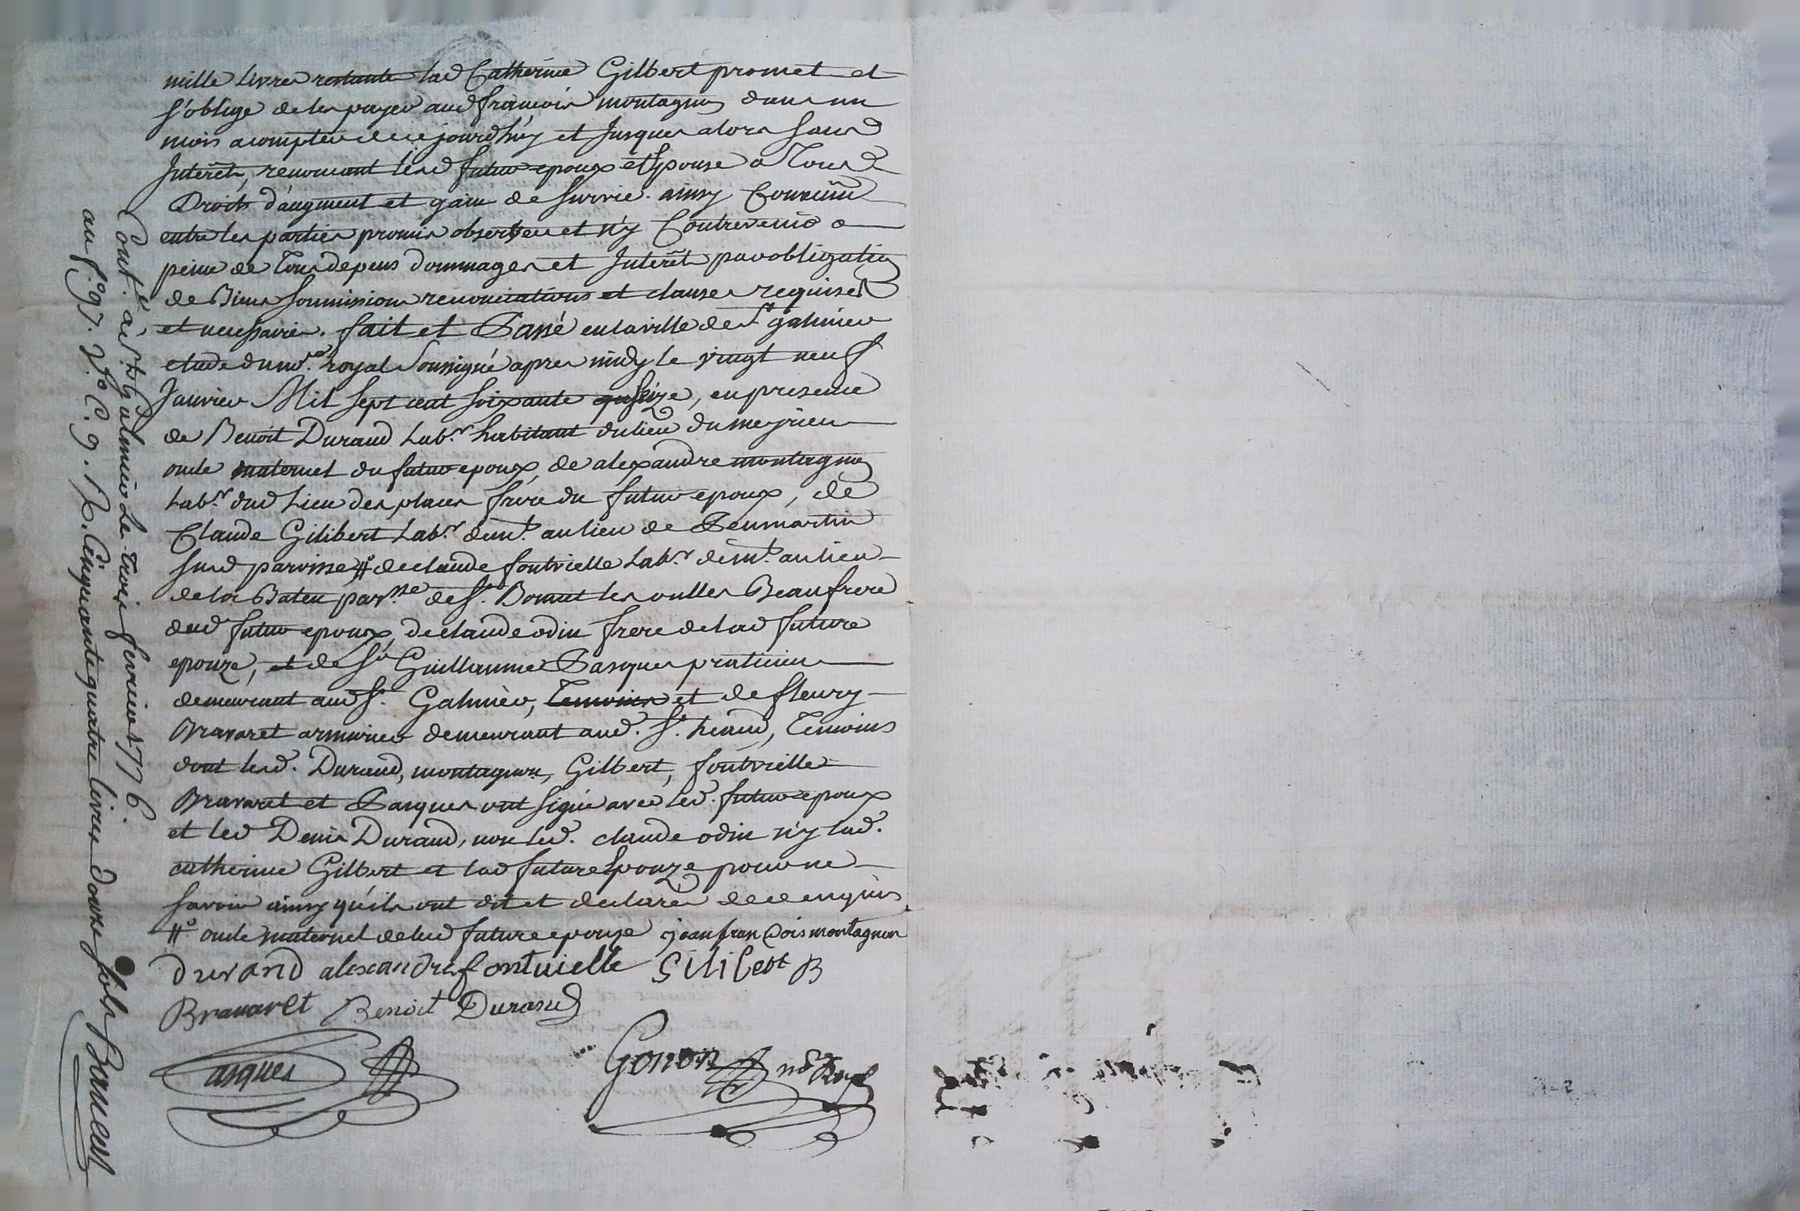 mille livres restante lad Catherine Gilbert promet et
s'oblige de les payer aud françois montagnon dans un
mois a compter de ce jourd'huy et Jusques alors sans
Interêts, renoncant lesd futur epoux et Epouse a Tous
Droits d'augment et gain de survie. ainsy Convenu
entre les parties promis observer et n'y Contrevenir a
peine de Tous depens dommages et Interêts par obligation
de Biens soumissions renonciations et clauses requises
et necessaires. fait et Passé en la ville de St galmier
etude du nre royal soussigné apres midy le vingt neuf
Janvier Mil sept cent soixante seize, en presence
de Benoit Durand Labr habitant du lieu du meyrieu
oncle maternel du futur epoux, de alexandre montagnon
Labr dud Lieu des places frere du futur epoux, de
Claude Gilibert Labr demt au lieu de Penmartin
susd paroisse # de claude fontvielle Labr demt au lieu
de la Bateu parsse de St Bonnet les oulles Beaufrere
dud futur epoux, de claude odin frere de lad future
epouze, et de Sr Guillaume Pasques praticien
demeurant aud St Galmier, Temoins et de fleury
Bravaret armurier demeurant aud. St heand, Temoins
dont lesd. Durand, montagnon, Gilbert, fontvielle
Bravaret et Pasques ont signé avec led. futur epoux
et led Denis Durand, non led. claude odin n'y lad.
catherine Gilbert et lad future Epouze pour ne
savoir ainsy qu'ils ont dit et declaré de ce enquis
# oncle maternel de lad future epouze jean francois montagnon
Durand alexandre fontvielle Gilibert B
Bravaret Benoit Durand
Pasques Gonon nre Royal
Cont. à St galmier Le trois fevrier 1776.
au f. 97. Vo C. 9. R. Cinquante quatre livres douze sols